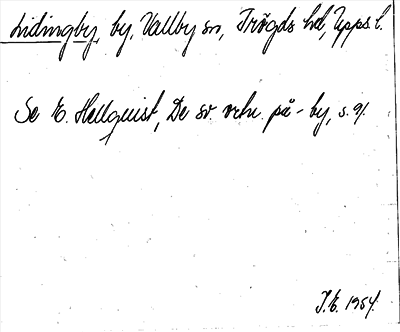 Lidingby, by, Vallby sn, Trögds hd, Upps. l.
Se E. Hellquist, De sv. ortn. på -by, s. 91.
J.E. 1954.